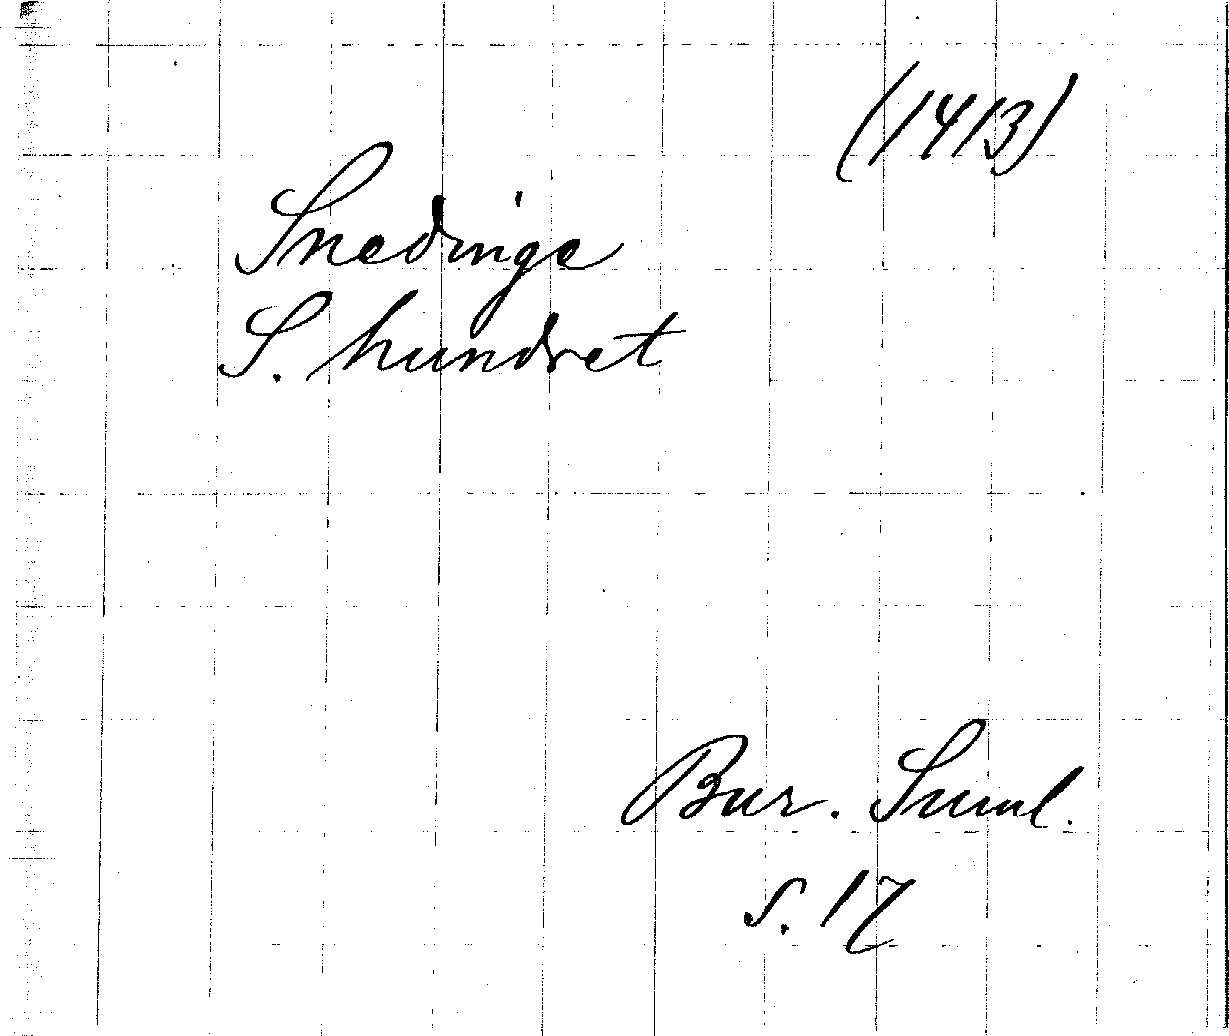 (1413)
Snedinge
S. hundret
Bur. Suml.
s. 17